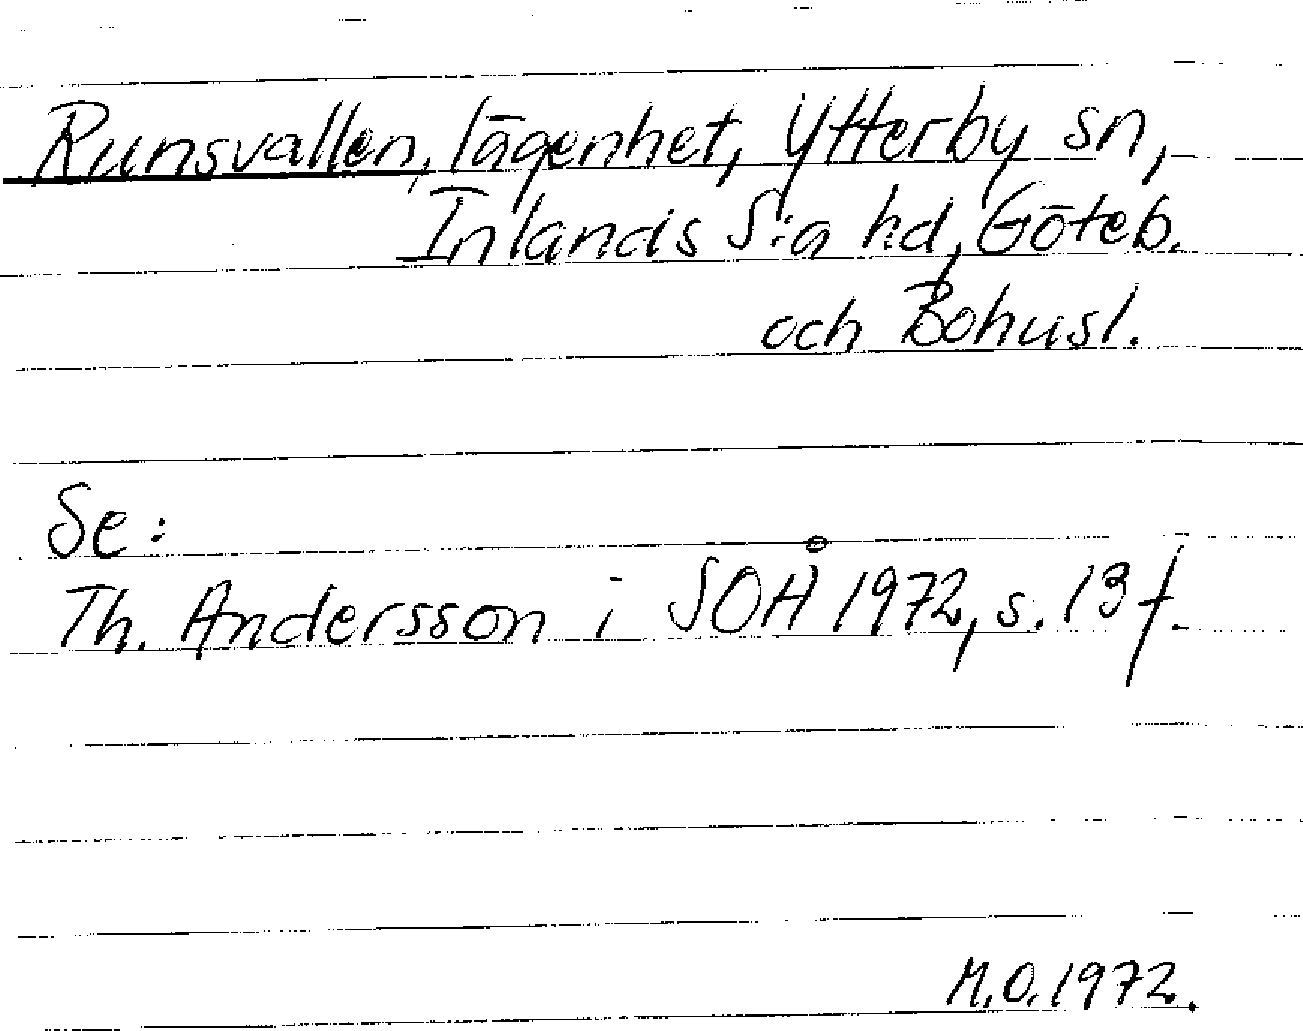 Runsvallen, lägenhet, Ytterby sn,
Inlands S:a hd, Göteb.
och Bohusl.
Se:
Th. Andersson i SOÅ 1972, s. 13 f.
M.O. 1972.